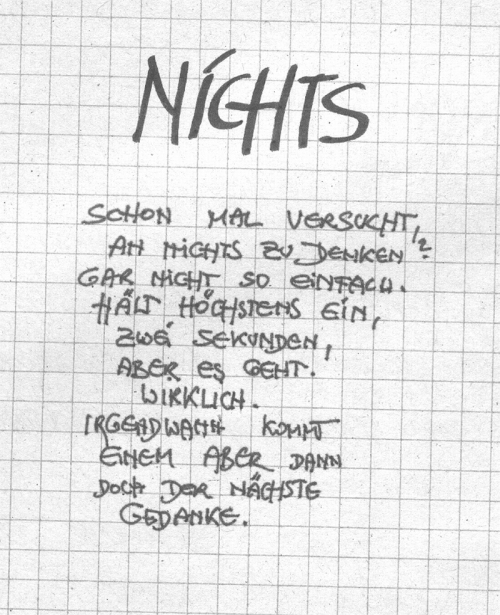 NICHTS
SCHON MAL VERSUCHT,
AN NICHTS ZU DENKEN?
GAR NICHT SO EINFACH.
HÄLT HÖCHSTENS EIN,
ZWEI SEKUNDEN,
ABER ES GEHT.
WIRKLICH.
IRGENDWANN KOMMT
EINEM ABER DANN
DOCH DER NÄCHSTE
GEDANKE.